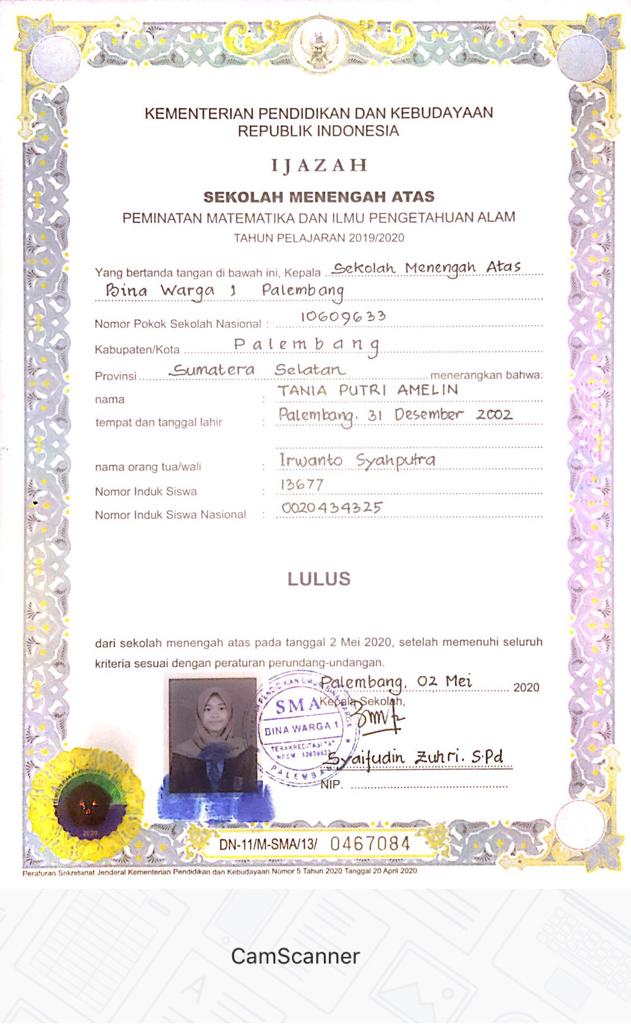 KEMENTERIAN PENDIDIKAN DAN KEBUDAYAAN
REPUBLIK INDONESIA
IJAZAH
SEKOLAH MENENGAH ATAS
PEMINATAN MATEMATIKA DAN ILMU PENGETAHUAN ALAM
TAHUN PELAJARAN 2019/2020
Yang bertanda tangan di bawah ini, Kepala Sekolah Menengah Atas
Bina Warga 1 Palembang
Nomor Pokok Sekolah Nasional : 10609633
Kabupaten/Kota Palembang
Provinsi Sumatera Selatan menerangkan bahwa:
nama : TANIA PUTRI AMELIN
tempat dan tanggal lahir : Palembang. 31 Desember 2002
nama orang tua/wali : Irwanto Syahputra
Nomor Induk Siswa : 13677
Nomor Induk Siswa Nasional : 0020434325
LULUS
dari sekolah menengah atas pada tanggal 2 Mei 2020, setelah memenuhi seluruh
kriteria sesuai dengan peraturan perundang-undangan.
Palembang, 02 Mei 2020
Kepala Sekolah,
SMA
BINA WARGA 1
TERAKREDITASI "A"
PALEMBANG
Syaifudin Zuhri. S.Pd
NIP.
2020
DN-11/M-SMA/13/ 0467084
Peraturan Sekretariat Jenderal Kementerian Pendidikan dan Kebudayaan Nomor 5 Tahun 2020 Tanggal 20 April 2020
CamScanner